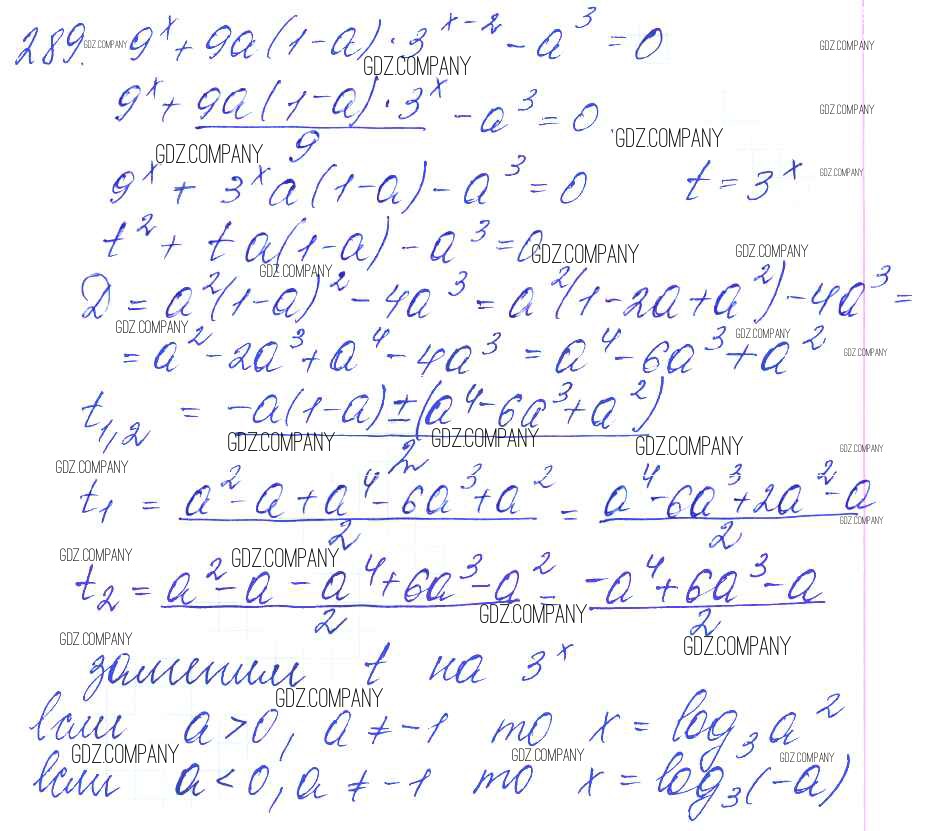 289. 9^x + 9a(1-a)·3^(x-2) - a^3 = 0
9^x + 9a(1-a)·3^x / 9 - a^3 = 0
9^x + 3^x a(1-a) - a^3 = 0 t = 3^x
t^2 + t a(1-a) - a^3 = 0
D = a^2(1-a)^2 - 4a^3 = a^2(1-2a+a^2) - 4a^3 =
= a^2 - 2a^3 + a^4 - 4a^3 = a^4 - 6a^3 + a^2
t_1,2 = (-a(1-a) ± (a^4 - 6a^3 + a^2)) / 2
t_1 = (a^2 - a + a^4 - 6a^3 + a^2) / 2 = (a^4 - 6a^3 + 2a^2 - a) / 2
t_2 = (a^2 - a - a^4 + 6a^3 - a^2) / 2 = (-a^4 + 6a^3 - a) / 2
заменим t на 3^x
если a > 0, a ≠ -1 то x = log_3 a^2
если a < 0, a ≠ -1 то x = log_3 (-a)
GDZ.COMPANY